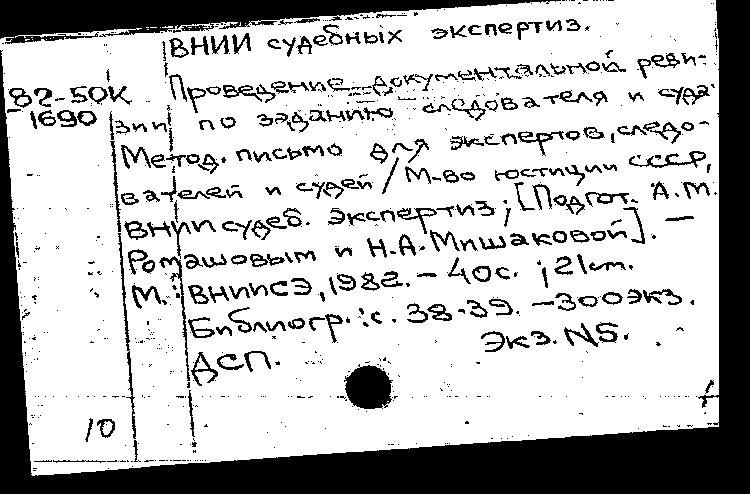 ВНИИ судебных экспертиз.
82-50К
1690
Проведение документальной реви-
зии по заданию следователя и суда:
Метод. письмо для экспертов, следо-
вателей и судей / М-во юстиции СССР,
ВНИИ судеб. экспертиз; [Подгот. А.М.
Ромашовым и Н.А. Мишаковой]. —
М.: ВНИИСЭ, 1982. - 40с. ; 21см.
Библиогр.: с. 38-39. - 300экз.
ДСП. Экз. N5.
10